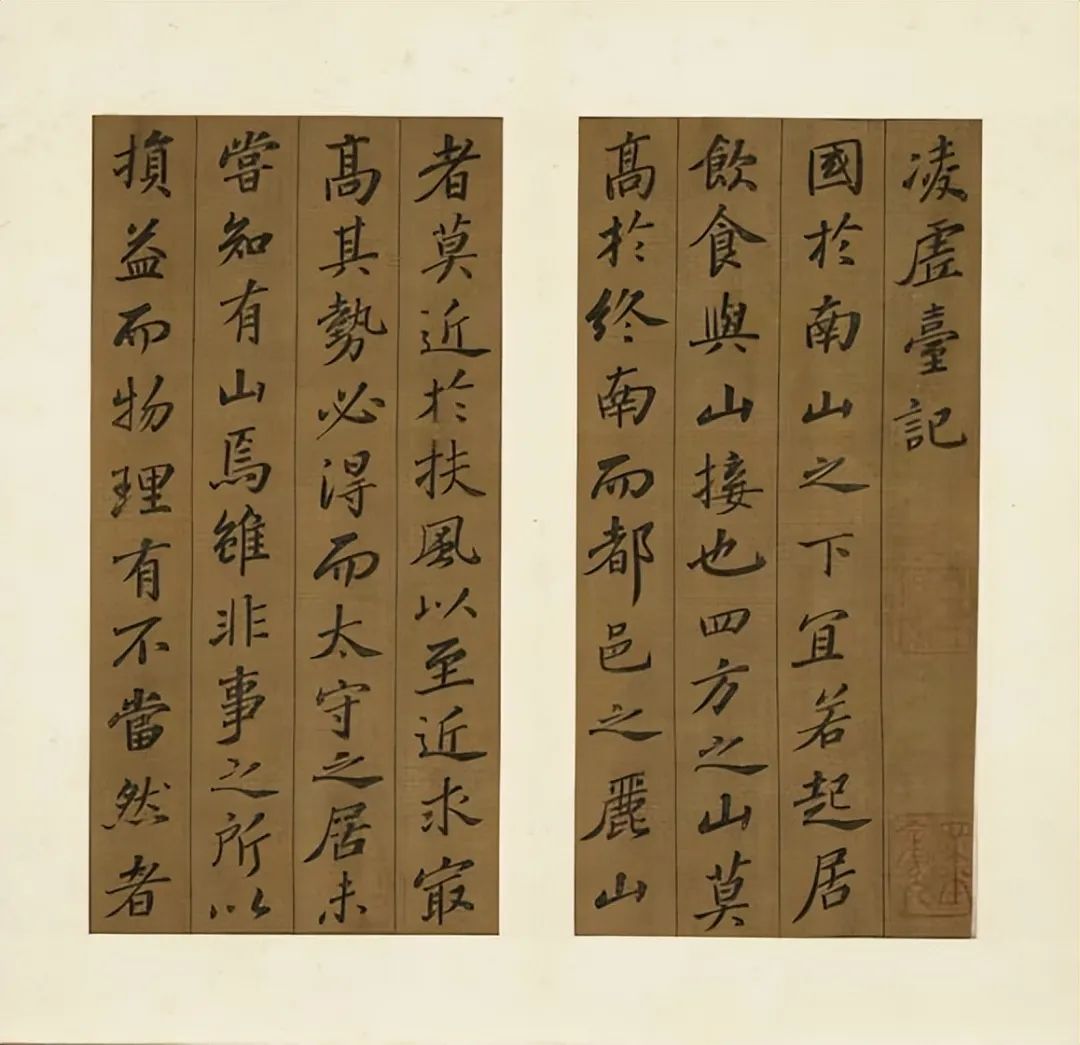 凌虛臺記
國於南山之下宜若起居
飲食與山接也四方之山莫
髙於終南而都邑之麗山
者莫近於扶風以至近求㝡
髙其勢必得而太守之居未
嘗知有山焉雖非事之所以
損益而物理有不當然者